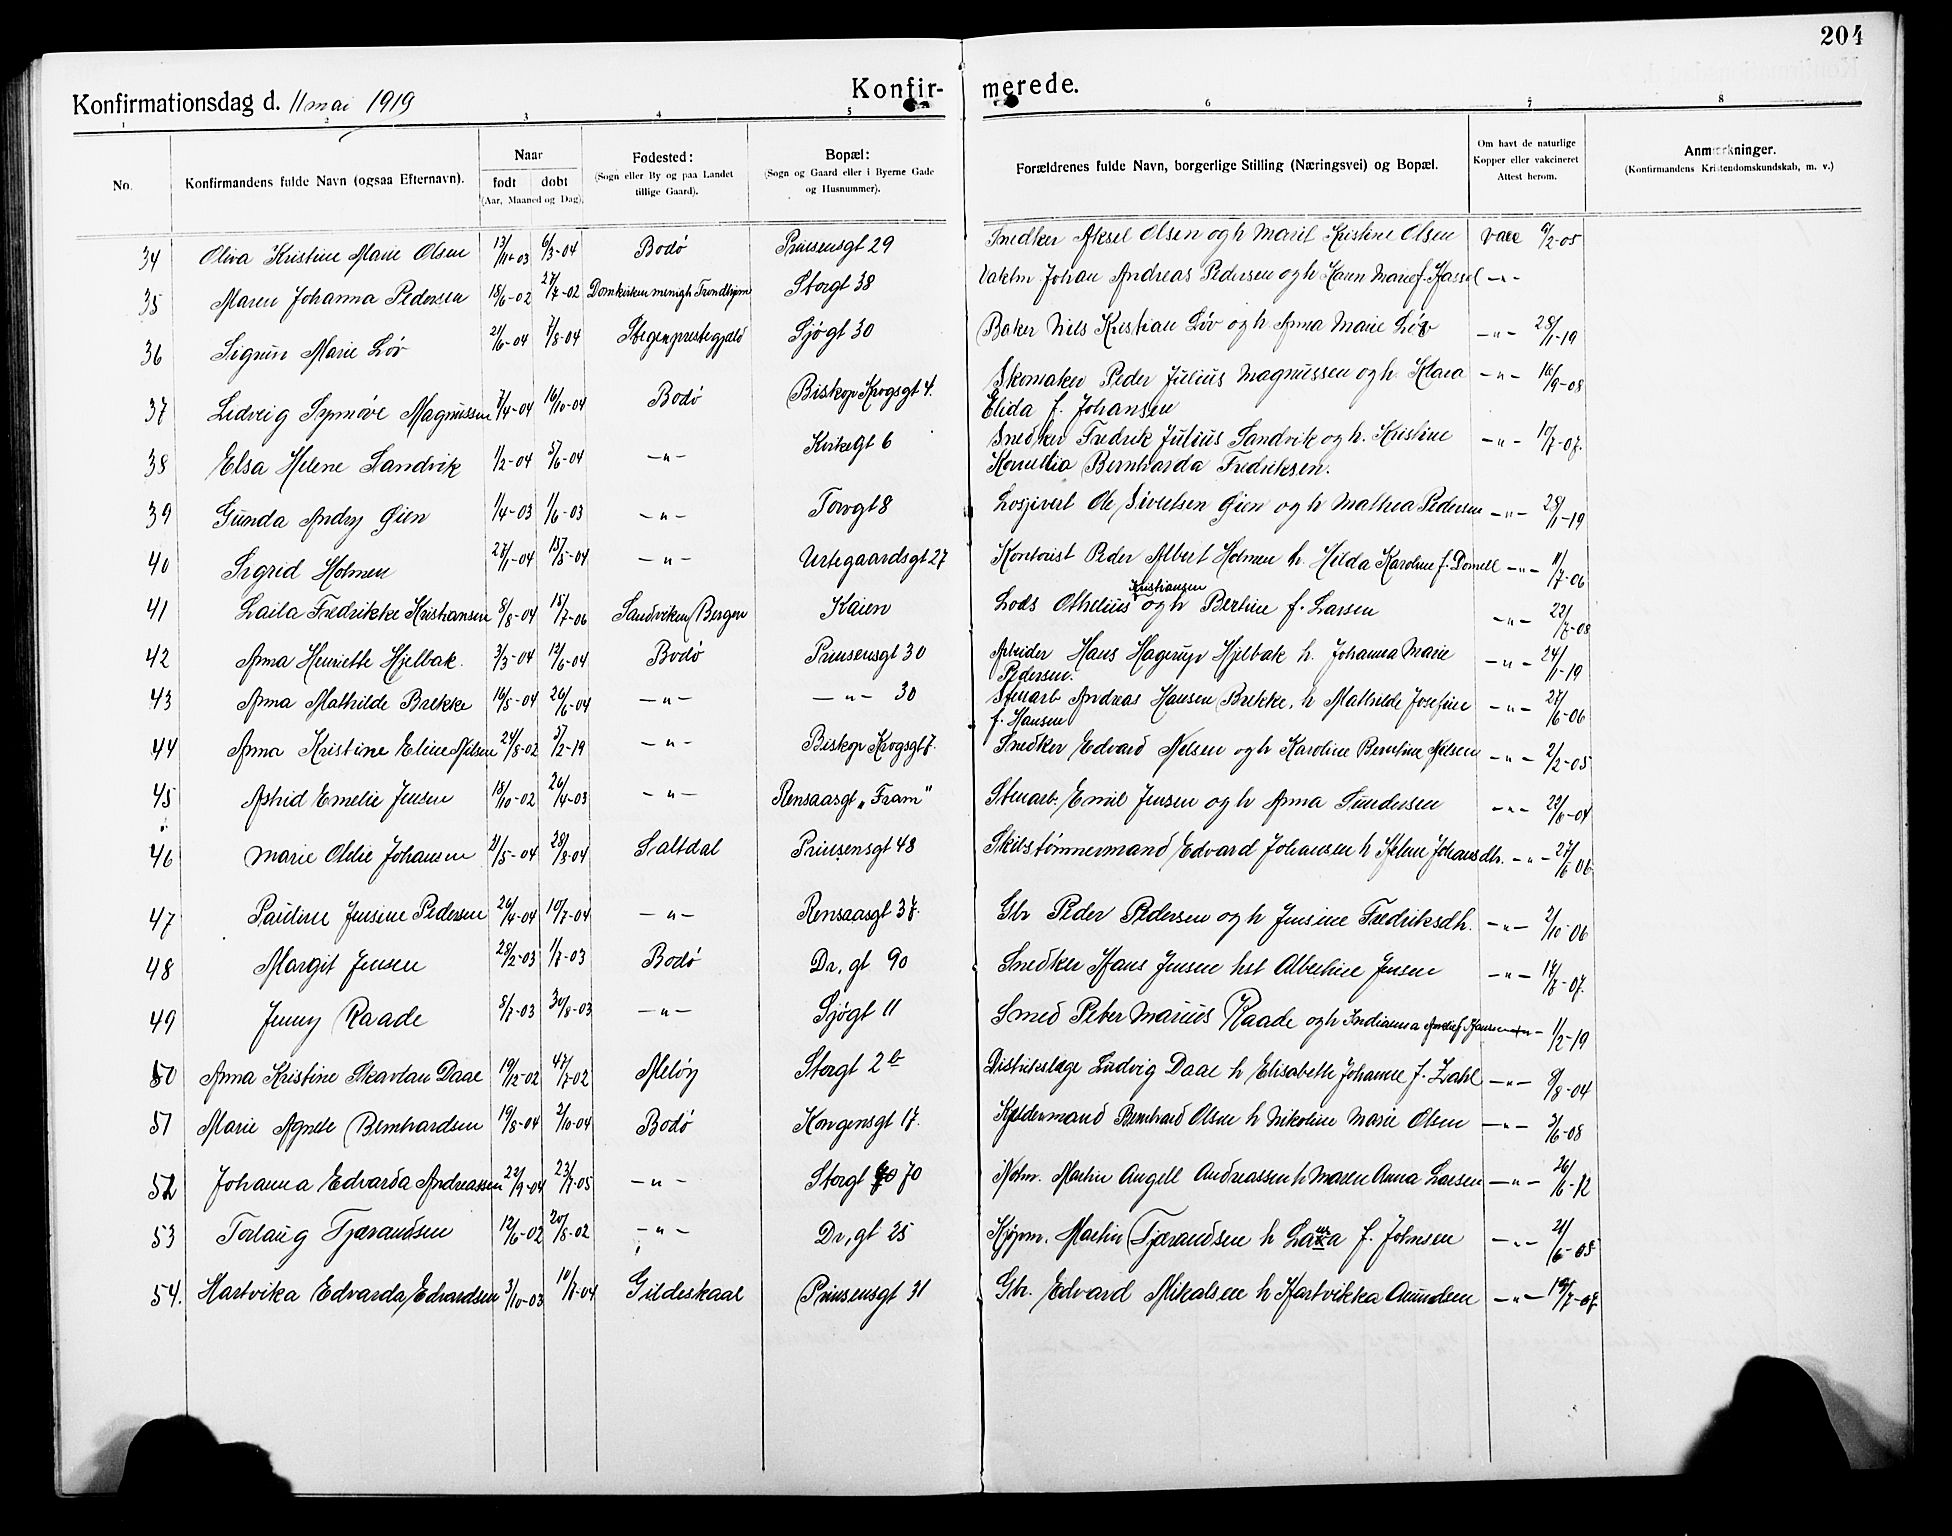 204
Konfirmationsdag d. 11 mai 1919
Konfir-
merede.
1 2 3 4 5 6 7 8
No.
Konfirmandens fulde Navn (ogsaa Efternavn).
Naar
født døbt
(Aar, Maaned og Dag).
Fødested:
(Sogn eller By og paa Landet
tillige Gaard).
Bopæl:
(Sogn og Gaard eller i Byerne Gade
og Husnummer).
Forældrenes fulde Navn, borgerlige Stilling (Næringsvei) og Bopæl.
Om havt de naturlige
Kopper eller vakcineret
Attest herom.
Anmærkninger.
(Konfirmandens Kristendomskundskab, m. v.)
34 Oliva Kristine Marie Olsen 13/11-03 6/3-04 Bodø Prinsensgt 29 Snedker Aksel Olsen og h Marit Kristine Olsen vacc /2-05
35 Maren Johanna Pedersen 18/6-02 27/7-02 Domkirken menigh Trondhjem Storgt 38 Vaktm Johan Andreas Pedersen og h Karen Marie f. Hassel -"-
36 Sigrun Marie Løv 21/6-04 7/8-04 Stegen prestegjæld Sjøgt 30 Baker Nils Kristian Løv og h Anna Marie Løv -"- 28/1-19
37 Ledveig Synnøve Magnussen 7/4-04 16/10-04 Bodø Biskop Krogsgt 4. Skomaker Peder Julius Magnussen og h. Klara -"- 16/9-08
Elida f. Johansen
38 Elsa Helene Sandvik 1/2-04 5/6-04 -"- Kirkegt 6 Snedker Fredrik Julius Sandvik og h. Kristine -"- 10/7-07.
Kornelia Bernharda Fredriksen.
39 Gunda Andry Øien 1/4-03 1/6-03 -"- Torvgt 8 Losjivert Ole Sivertsen Øien og h Mathea Pedersen -"- 28/1-19
40 Sigrid Holmen 27/1-04 15/5-04 -"- Urtegaardsgt 27 Kontorist Peder Albert Holmen h. Hilda Karoline f. -"- 11/7-06
41 Laila Fredrikke Kristiansen 8/8-04 15/7-06 Sandviken Bergen Kaien Lods Othelius Kristiansen og h Bertine f. Larsen -"- 22/7-08
42 Anna Henriette Hjelbak. 3/3-04 12/6-04 Bodø Prinsensgt 30 Arbeider Hans Hagerup Hjelbak h. Johanna Marie -"- 24/1-19
Pedersen.
43 Anna Mathilde Brekke 16/5-04 26/6-04 -"- -"- 30 Stenarb Andreas Hansen Brekke, h Mathilde Josefine -"- 27/6-06
f. Hansen
44 Anna Kristine Eline Nilsen 24/8-02 5/2-19 -"- Biskop Krogsgt 7. Snedker Edvard Nilsen og h Karoline Berntine Nilsen -"- 2/2-05
45 Astrid Emelie Jensen 18/10-02 26/4-03 -"- Rensaasgt „Fram" Stenarb. Emil Jensen og h Anna Gundersen -"- 22/6-04
46 Marie Otelie Johansen 21/5-04 28/8-04 Saltdal Prinsensgt 48 Skibstømmermand Edvard Johansen h Helene Johansdtr. -"- 27/6 06
47 Pauline Jensine Pedersen 26/4-04 10/7-04 -"- Rensaasgt 37. Gbr Peder Pedersen og h Jensine Fredriksdtr. -"- 2/10-06
48 Margit Jensen 28/2-03 1/7-03 Bodø Dr, gt 90 Snedker Hans Jensen hst Albertine Jensen -"- 17/8-07.
49 Jenny Raade 5/7-03 30/8-03 -"- Sjøgt 11 Smed Peter Marius Raade og h Indianna Amalie f. Hansen -"- 1/2-19
50 Anna Kristine Skavlan Daae 19/12-02 /7-02 Meløy Storgt 2b Distriktslæge Ludvig Daae h Elisabeth Johanne f. Zahl -"- 9/8-04
51 Marie Agnete Bernhardsen 19/8-04 2/10-04 Bodø Kongensgt 17. Kjeldermand Bernhard Olsen h Nikoline Marie Olsen -"- 3/6-08
52 Johanna Edvarda Andreassen 22/9-04 23/7-05 -"- Storgt 70 Mortin Angell Andreassen h Maren Anna Larsen -"- 26/6-12
53 Torlaug Tjærandsen 12/6-02 20/8-02 -"- Dr, gt 25 Kjøpm. Martin Tjærandsen h Laura f. Johnsen -"- 21/6-05
54. Hartvika Edvarda Edvardsen 3/10-03 10/7-04 Gildeskaal Prinsensgt 31 Gbr. Edvard Mikalsen h Hartvikka Amundsen -"- 19/7-07